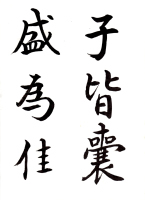 子皆囊
盛為佳